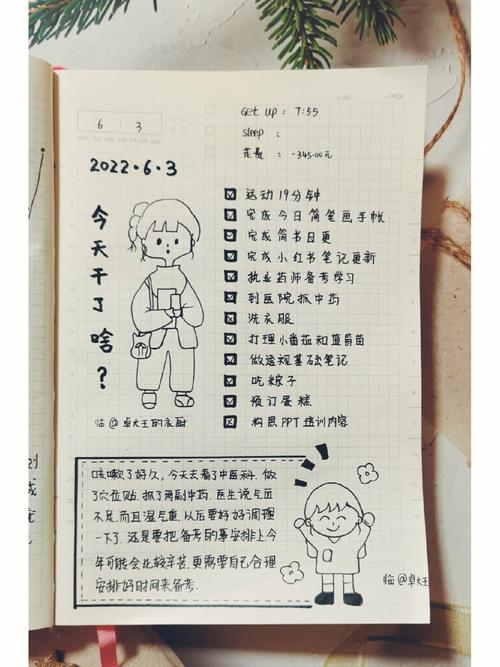 6 3
Get up : 7:55
sleep :
花费 : -345.00元
2022.6.3
今天干了啥?
运动19分钟
完成今日简笔画手帐
完成简书日更
完成小红书笔记更新
执业药师备考学习
到医院抓中药
洗衣服
打理小番茄和蓝莓苗
做透视基础笔记
吃粽子
预订蛋糕
构思PPT培训内容
临@卓大王的衣厨
咳嗽了好久,今天去看了中医科.做
了穴位贴.抓了两副中药.医生说气血
不足.而且湿气重.以后要好好调理
一下了.还是要把备考的事安排上今
年可能会比较辛苦.更需要自己合理
安排好时间来备考.
临@卓大王